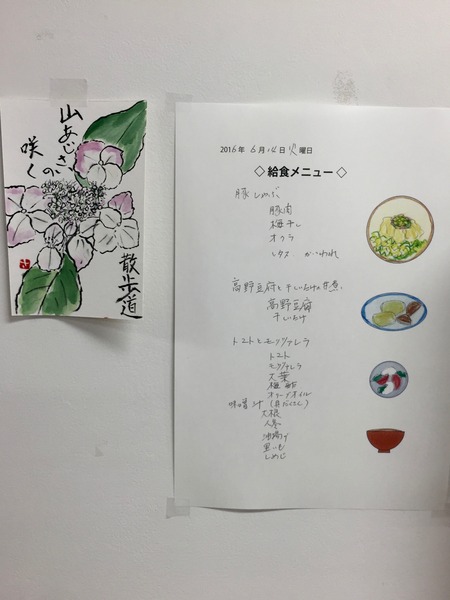 山あじさいの
咲く
散歩道
2016年 6月 14日 火曜日
◇ 給食メニュー ◇
豚しゃぶ
豚肉
梅干し
オクラ
レタス かいわれ
高野豆腐と干しいたけの甘煮
高野豆腐
干しいたけ
トマトとモッツァレラ
トマト
モッツァレラ
大葉
オリーブオイル
味噌汁(具だくさん)
大根
人参
油揚げ
里いも
しめじ